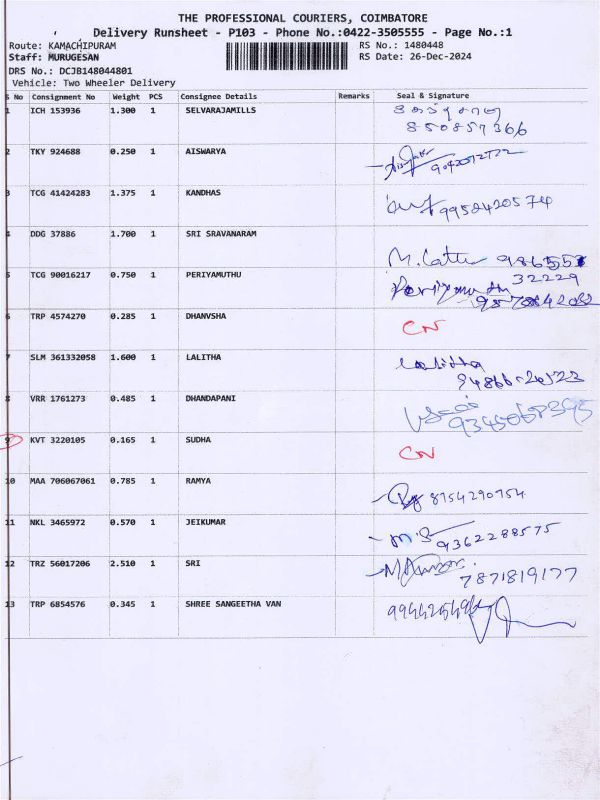 THE PROFESSIONAL COURIERS, COIMBATORE
Delivery Runsheet - P103 - Phone No.:0422-3505555 - Page No.:1
Route: KAMACHIPURAM RS No.: 1480448
Staff: MURUGESAN RS Date: 26-Dec-2024
DRS No.: DCJB148044801
Vehicle: Two Wheeler Delivery
S No Consignment No Weight PCS Consignee Details Remarks Seal & Signature
1 ICH 153936 1.300 1 SELVARAJAMILLS
850857366
2 TKY 924688 0.250 1 AISWARYA
3 TCG 41424283 1.375 1 KANDHAS 9958420574
4 DDG 37886 1.700 1 SRI SRAVANARAM
5 TCG 90016217 0.750 1 PERIYAMUTHU 32229
6 TRP 4574270 0.285 1 DHANVSHA CN
7 SLM 361332058 1.600 1 LALITHA Lalitha
8 VRR 1761273 0.485 1 DHANDAPANI
9 KVT 3220105 0.165 1 SUDHA CN
10 MAA 706067061 0.785 1 RAMYA 8754290754
11 NKL 3465972 0.570 1 JEIKUMAR M.S 9362288575
12 TRZ 56017206 2.510 1 SRI
7871819177
13 TRP 6854576 0.345 1 SHREE SANGEETHA VAN